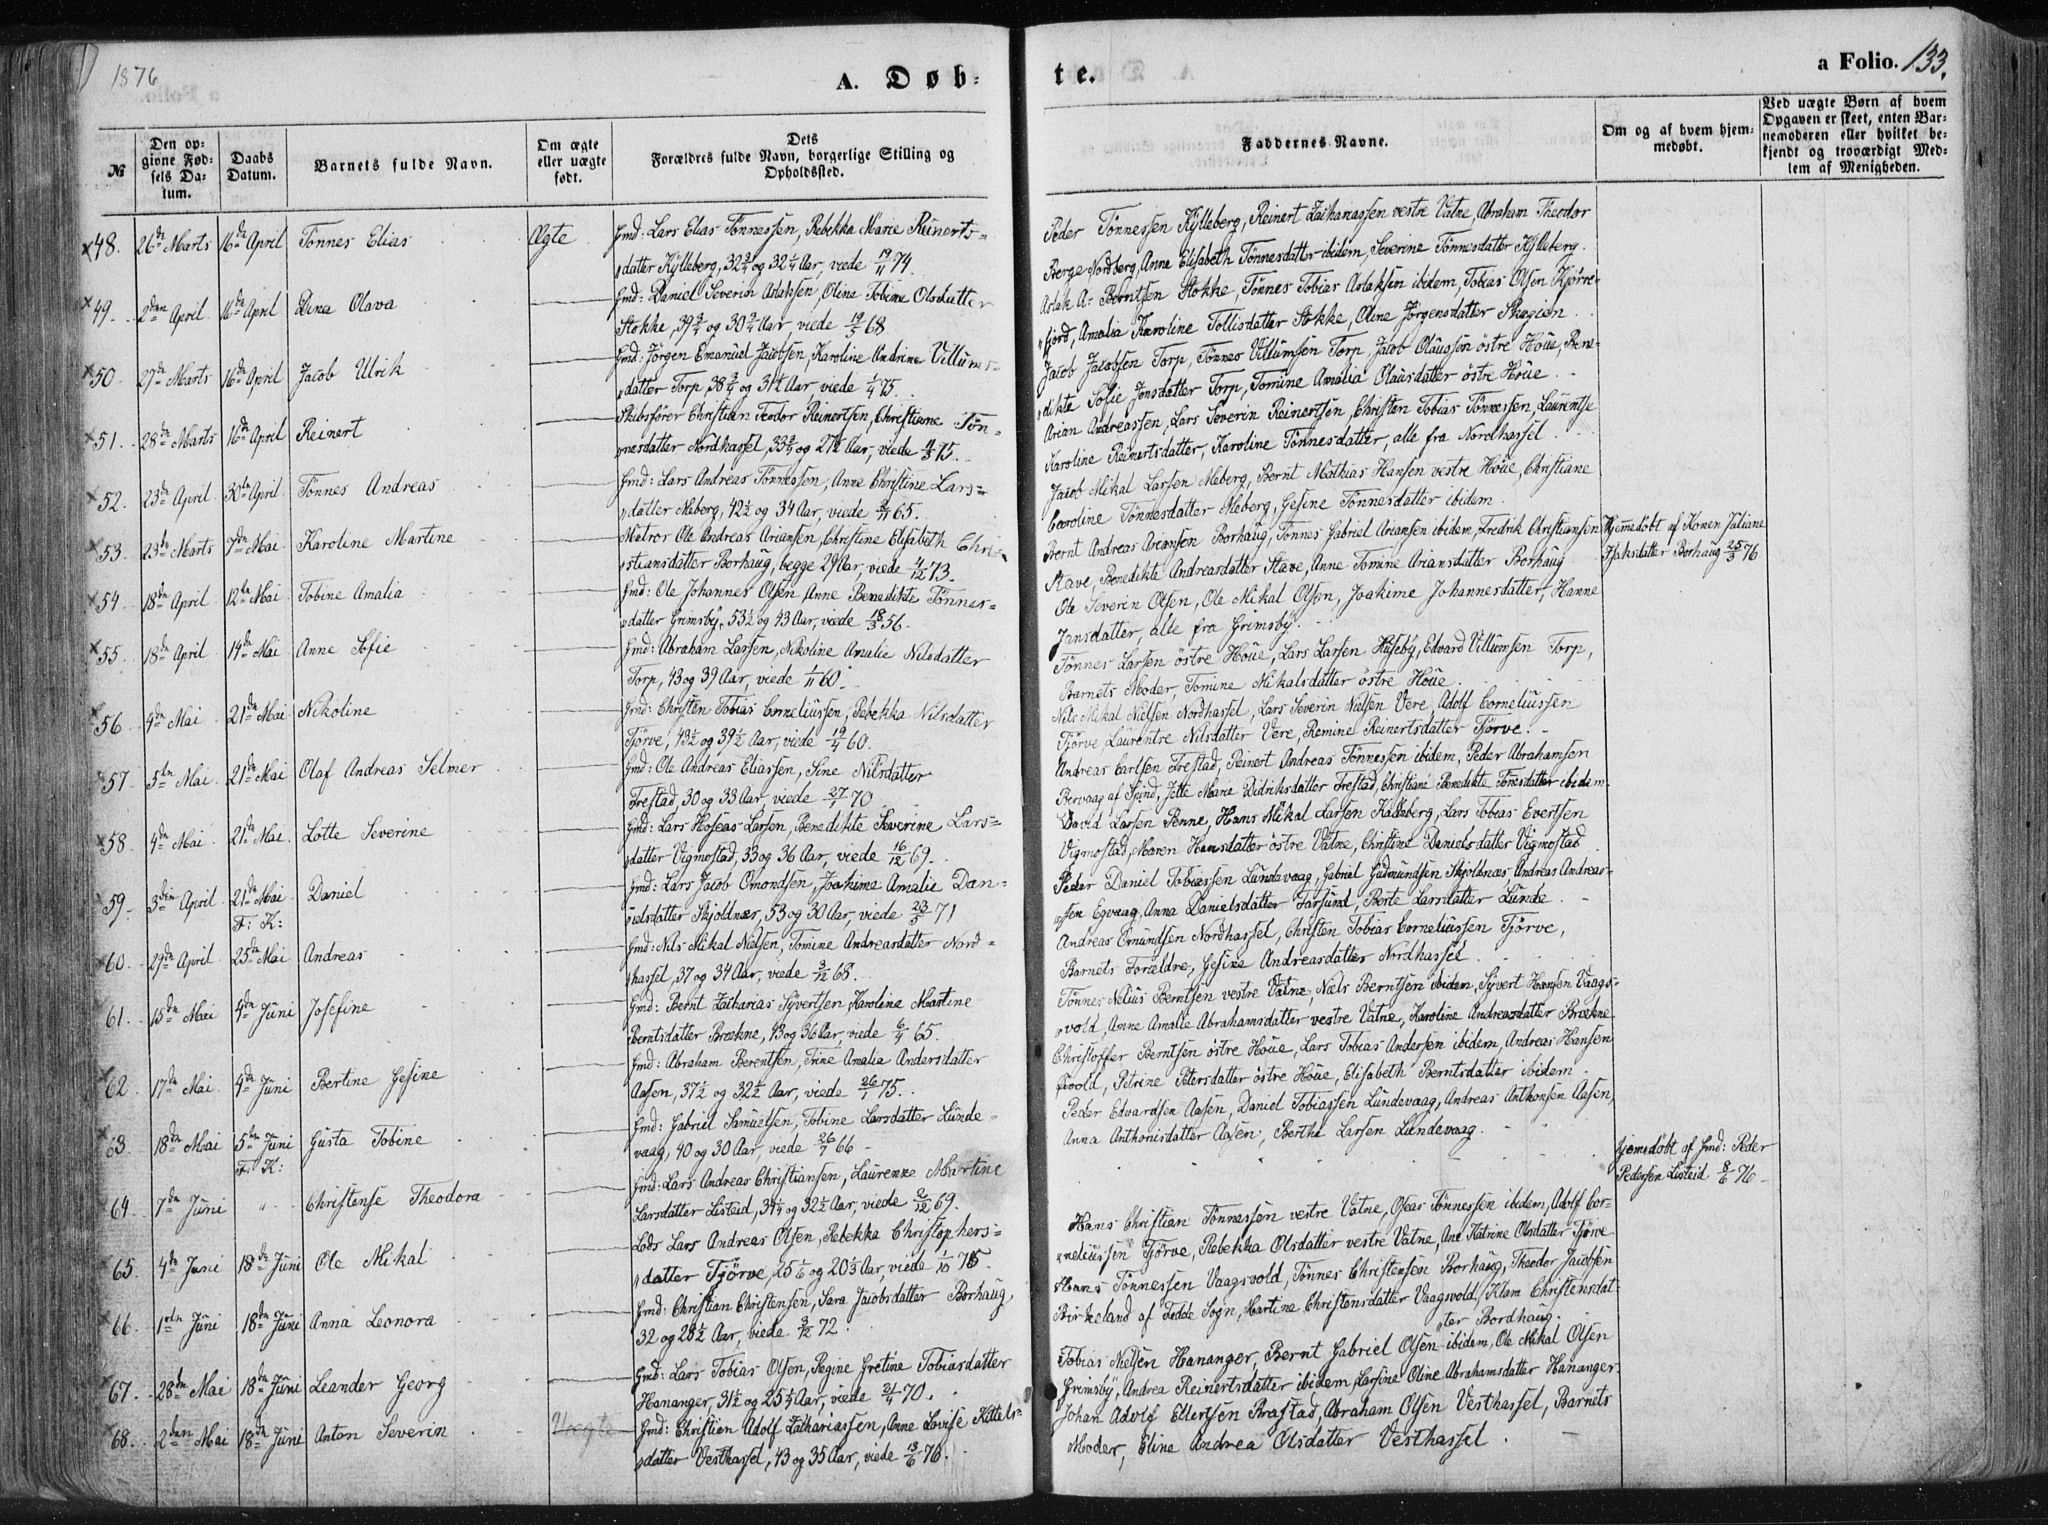 1876
A. Døb-
te.
a Folio. 133.
№
Den op-
givne Fød-
sels Da-
tum.
Daabs
Datum.
Barnets fulde Navn.
Om ægte
eller uægte
født.
Dets
Forældres fulde Navn, borgerlige Stilling og
Opholdssted.
Faddernes Navne.
Om og af hvem hjem-
medøbt.
Ved uægte Børn af hvem
Opgaven er skeet, enten Bar-
nemoderen eller hvilket be-
kjendt og troværdigt Med-
lem af Menigheden.
48. 26de Marts 16de April Tönnes Elias Ægte Gmd: Lars Elias Tönnessen, Rebekka Marie Reinerts-
datter Kÿlleberg, 32 3/4 og 32 1/4 Aar, viede 19/11 74.
Peder Tönnessen Kÿlleberg, Reinert Zachariassen vestre Vatne, Abraham Theodor
Berge Nordberg, Anne Elisabeth Tönnesdatter ibidem, Severine Tönnesdatter Kÿlleberg.
49. 2den April 16de April Dina Olava Gmd: Daniel Severin Aslaksen, Olina Tobine Olsdatter
Stokke, 39 3/4 og 30 3/4 Aar, viede 19/5 68
Aslak A. Berntsen Stokke, Tönnes Tobias Aslaksen ibidem, Tobias Olsen Kjörre-
fjord, Amalia Karoline Tollisdatter Stokke, Oline Jörgensdatter Skagien.
50. 27de Marts 16de April Jacob Ulrik Gmd: Jörgen Emanuel Jacobsen, Karoline Andrine Villums-
datter Torp, 38 3/4 og 31 1/2 Aar, viede 1/4 75.
Jacob Jacobsen Torp, Tönnes Villumsen Torp, Jacob Olaussen östre Höue, Bene-
dikte Sofie Jonsdatter Torp, Tomine Amalia Olausdatter östre Höue.
51. 28de Marts 16de April Reinert Skibsförer Christian Teodor Reinertsen, Christiane Tön-
nesdatter Nordhassel, 33 3/4 og 27 1/2 Aar, viede 4/3 75.
Arian Andreassen, Lars Severin Reinertsen, Christen Tobias Tönnessen, Laurentse
Karoline Reinertsdatter, Karoline Tönnesdatter, alle fra Nordhassel.
52. 23de April 30te April Tönnes Andreas Gmd: Lars Andreas Tönnessen, Anne Christine Lars-
datter Meberg, 42 1/2 og 34 Aar, viede 2/11 65.
Jacob Mikal Larsen Meberg, Bernt Mathias Hansen vestre Höue, Christiane
Caroline Tönnesdatter Meberg, Gesine Tönnesdatter ibidem.
53. 23de Marts 7de Mai Karoline Martine Matros Ole Andreas Ariansen, Christine Elisabeth Chri-
stiansdatter Borhaug, begge 29 Aar, viede 4/12 73.
Bernt Andreas Ariansen Borhaug, Tönnes Gabriel Ariansen ibidem, Fredrik Christiansen
Stave, Benedikte Andreasdatter Stave, Anne Tomine Ariansdatter Borhaug
Hjemmedöbt af Konen Juliane
Isaksdatter Borhaug 25/3 76
54. 18de April 12te Mai Tobine Amalia Gmd: Ole Johannes Olsen, Anne Benedikte Tönnes-
datter Grimsbÿ, 53 1/2 og 43 Aar, viede 18/3 56.
Ole Severin Olsen, Ole Mikal Olsen, Joakime Johannesdatter, Hanne
Jansdatter, alle fra Grimsbÿ.
55. 18de April 14de Mai Anne Sofie Gmd: Abraham Larsen, Nikoline Amalie Nilsdatter
Torp, 43 og 39 Aar, viede 1/11 60.
Tönnes Larsen östre Höue, Lars Larsen Husebÿ, Edvard Villumsen Torp,
Barnets Moder, Tomine Mikalsdatter östre Höue.
56. 9de Mai 21de Mai Nikoline Gmd: Christen Tobias Corneliussen, Rebekka Nilsdatter
Tjörve, 43 1/2 og 39 1/2 Aar, viede 19/4 60.
Nils Mikal Nielsen Nordhassel, Lars Severin Nielsen Vere, Adolf Corneliussen
Tjörve Laurentse Nilsdatter Vere, Remine Reinertsdatter Tjörve.
57. 5te Mai 21de Mai Olaf Andreas Selmer Gmd: Ole Andreas Eliassen, Sine Nilsdatter
Frestad, 30 og 33 Aar, viede 27/1 70
Andreas Carlsen Frestad, Reinert Andreas Tönnessen ibidem, Peder Abrahamsen
Bervaag af Spind, Jette Marie Didriksdatter Frestad, Christiane Benedikte Tönesdatter ibidem.
58. 4de Mai 21de Mai Lotte Severine Gmd: Lars Hoseas Larsen, Benedikte Severine Lars-
datter Vigmostad, 33 og 36 Aar, viede 16/12 69.
David Larsen Penne, Hans Mikal Larsen Kalleberg, Lars Tobias Evertsen
Vigmostad, Maren Hansdatter östre Vatne, Christine Danielsdatter Vigmostad
59. 3den April 21de Mai Daniel Gmd: Lars Jacob Omondsen, Joakime Amalie Dan-
F: K:
ielsdatter Skjoldnæs, 53 og 30 Aar, viede 23/5 71
Peder Daniel Tobiassen Lundevaag, Gabriel Gudmundsen Skjoldnæs, Andreas Andreas-
sen Egvaag, Anna Danielsdatter Farsund, Berte Larsdatter Lunde.
60. 29de April 25de Mai Andreas Gmd: Nils Mikal Nielsen, Tomine Andreasdatter Nord-
hassel, 37 og 34 Aar, viede 3/12 68.
Andreas Omundsen Nordhassel, Christen Tobias Corneliussen Tjörve,
Barnets Forældre, Gesine Andreasdatter Nordhassel.
61. 15de Mai 4de Juni Josefine Gmd: Bernt Zacharias Sÿvertsen, Karoline Martine
Berntsdatter Brækne, 43 og 36 Aar, viede 6/4 65.
Tönnes Nelius Berntsen vestre Vatne, Niels Berntsen ibidem, Sÿvert Hansen Vaags-
vold, Anne Amalie Abrahamsdatter vestre Vatne, Karoline Andreasdatter Brækne
62. 17de Mai 4de Juni Bertine Gesine Gmd: Abraham Berentsen, Trine Amalia Andersdatter
Aasen, 37 1/2 og 32 1/2 Aar, viede 26/1 75.
Christoffer Berntsen östre Höue, Lars Tobias Andersen ibidem, Andreas Hansen
Petrine Petersdatter östre Höue, Elisabeth Berntsdatter ibidem.
63. 18de Mai 5te Juni Gusta Tobine Gmd: Gabriel Samuelsen, Tobine Larsdatter Lunde-
F: K:
vaag, 40 og 30 Aar, viede 26/7 66
Peder Edvardsen Aasen, Daniel Tobiassen Lundevaag, Andreas Anthonsen Aasen,
Anna Anthonisdatter Aasen, Berthe Larsen Lundevaag.
64. 7de Juni " Christense Theodora Gmd: Lars Andreas Christiansen, Laurense Martine
Larsdatter Listeid, 34 1/4 og 32 1/2 Aar, viede 2/12 69.
Hjemedöbt af Gmd: Peder
Pedersen Listeid 8/6 76
65. 4de Juni 18de Juni Ole Mikal Lods Lars Andreas Olsen, Rebekka Christophers-
datter Tjörve, 25 1/6 og 20 1/3 Aar, viede 1/10 75.
Hans Christian Tönnessen vestre Vatne, Oseas Tönnessen ibidem, Adolf Cor-
neliussen Tjörve, Rebekka Olsdatter vestre Vatne, Ane Katrine Olsdatter Tjörve
66. 1ste Juni 18de Juni Anna Leonora Gmd: Christian Christensen, Sara Jacobsdatter Borhaug,
32 og 28 1/2 Aar, viede 3/12 72.
Hans Tönnessen Vaagsvold, Tönnes Christensen Borhaug, Theodor Jacobsen
Birkeland af Fedde Sogn, Martine Christensdatter Vaagsvold, Klam Christensdat-
ter Bordhaug.
67. 28de Mai 18de Juni Leander Georg Gmd: Lars Tobias Olsen, Regine Gretine Tobiasdatter
Hananger, 31 1/2 og 25 1/4 Aar, viede 2/4 70.
Tobias Nielsen Hananger, Bernt Gabriel Olsen ibidem, Ole Mikal Olsen
Grimsbÿ, Andrea Reinertsdatter ibidem, Larsine Oline Abrahamsdatter Hananger.
68. 2den Mai 18de Juni Anton Severin Uægte Gmd: Christian Adolf Zachariassen, Anne Lovise Kittels-
datter Vesthassel, 43 og 35 Aar, viede 13/6 76.
Johan Adolf Ellertsen Brastad, Abraham Olsen Vesthassel, Barnets
Moder, Eline Andrea Olsdatter Vesthassel.